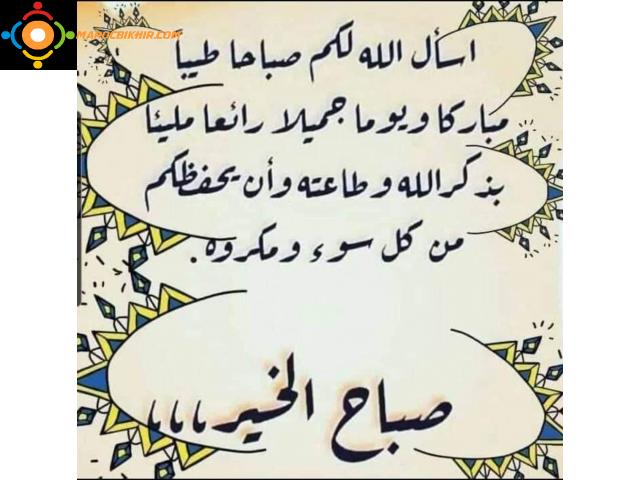 MAROCBIKHIR.COM
اسأل الله لكم صباحا طيبا
مباركا ويوما جميلا رائعا مليئا
بذكر الله وطاعته وأن يحفظكم
من كل سوء ومكروه.
صباح الخير،،،،